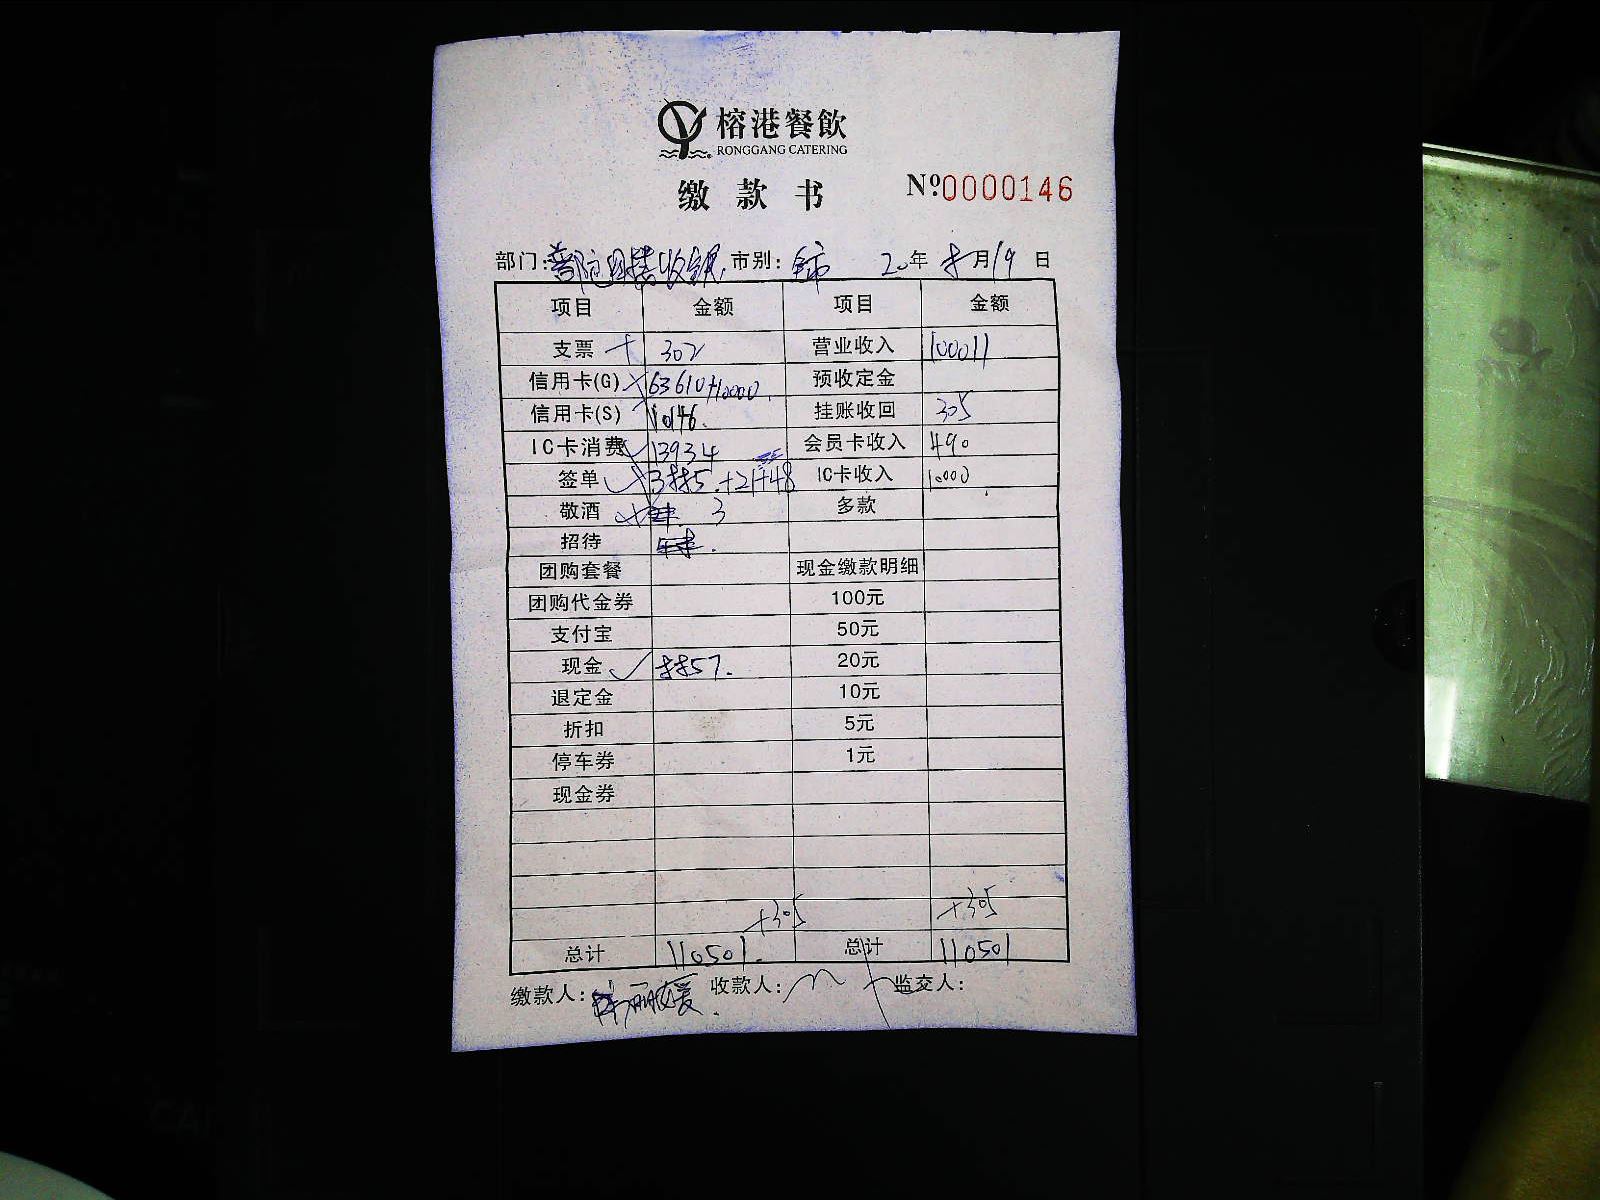 榕港餐飲
RONGGANG CATERING
缴款书
Nº0000146
部门: 市别: 全市 20年 8月19日
项目 金额 项目 金额
支票 302 营业收入 100011
信用卡(G) 63610+10000 预收定金
信用卡(S) 10146. 挂账收回 305
IC卡消费 13934 会员卡收入 490
签单 3885.+21+48 IC卡收入 10000
敬酒 3 多款
招待
团购套餐 现金缴款明细
团购代金券 100元
支付宝 50元
现金 8857. 20元
退定金 10元
折扣 5元
停车券 1元
现金券
+305 +305
总计 110501. 总计 110501
缴款人: 收款人: 监交人: